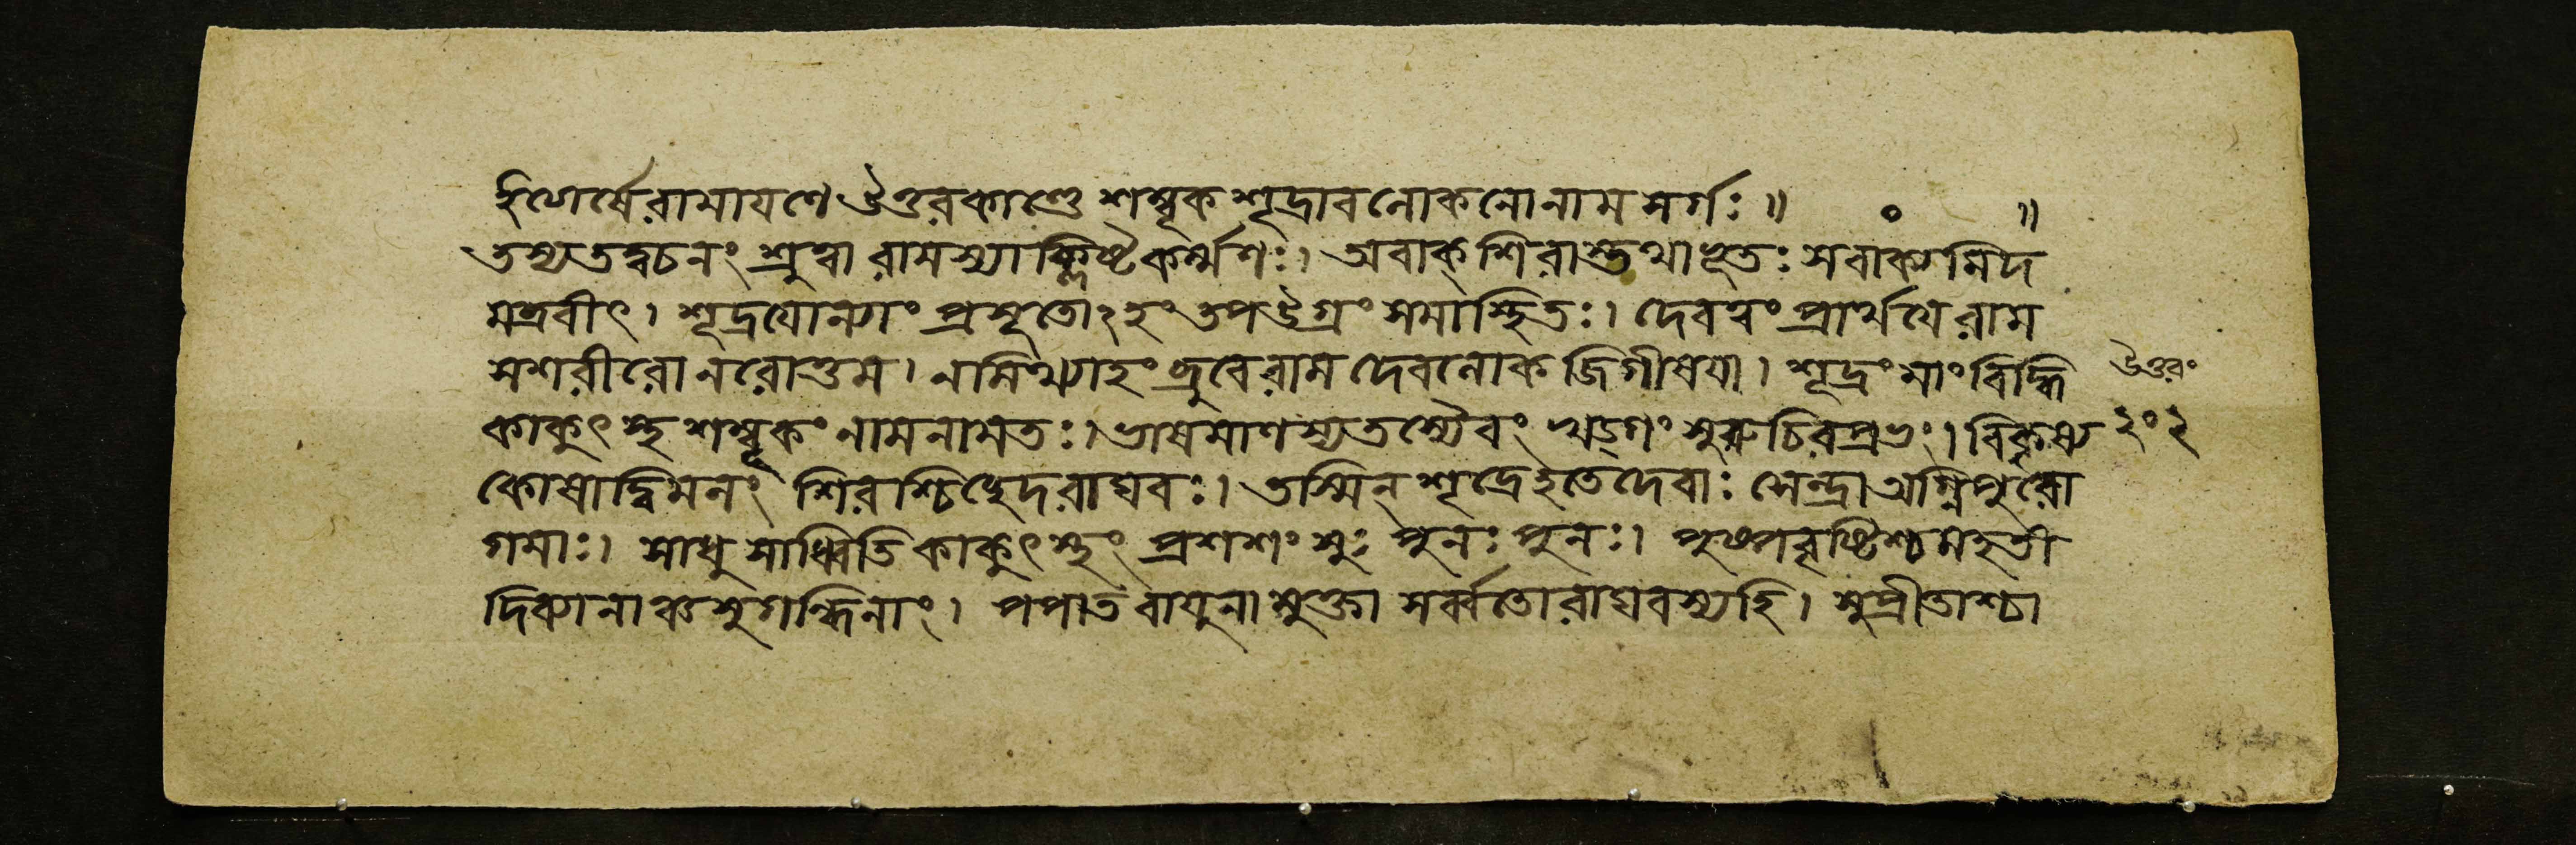 ইত্যার্ষে রামাযণে উত্তরকাণ্ডে শম্বূকশূদ্রাবলোকনোনাম সর্গঃ ॥ ॰ ॥
তস্যতদ্বচনং শ্রুত্বা রামস্যাক্লিষ্টকর্ম্মণঃ। অবাক্শিরাস্তথাভূতঃ সবাক্যমিদ
মব্রবীৎ। শূদ্রযোন্যাং প্রসূতোঽহং তপউগ্রং সমাস্থিতঃ। দেবত্বং প্রার্থযে রাম
সশরীরো নরোত্তম। নমিথ্যাহং ব্রুবে রাম দেবলোকজিগীষযা। শূদ্রং মাং বিদ্ধি
উত্তরং
কাকুৎস্থ শম্বূকং নামনামতঃ। ভাষমাণস্যতস্যৈবং খড্গং সুরুচিরপ্রভং। বিকৃষ্য
২ং২
কোষাদ্বিমলং শিরশ্চিচ্ছেদরাঘবঃ। তস্মিন্ শূদ্রেহতেদেবাঃ সেন্দ্রা অগ্নিপুরো
গমাঃ। সাধু সাধ্বিতি কাকুৎস্থং প্রশশংসুঃ পুনঃ পুনঃ। পুষ্পবৃষ্টিশ্চমহতী
দিব্যানাঞ্চসুগন্ধিনাং। পপাত বাযুনামুক্তা সর্ব্বতোরাঘবস্যহি। সুপ্রীতাশ্চা